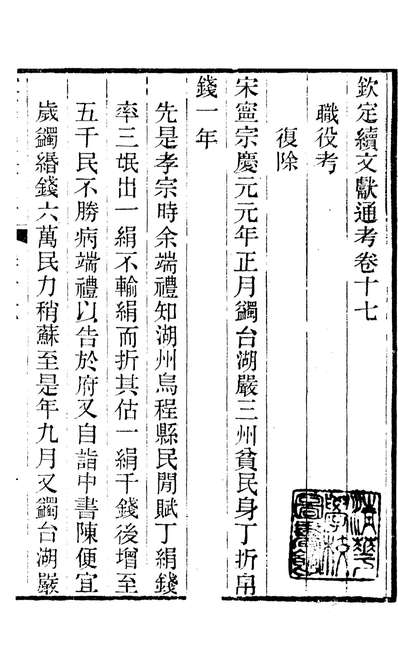 欽定續文獻通考卷十七
職役考
復除
宋寧宗慶元元年正月蠲台湖嚴三州貧民身丁折帛
錢一年
先是孝宗時余端禮知湖州烏程縣民閒賦丁絹錢
率三氓出一絹不輸絹而折其估一絹千錢後增至
五千民不勝病端禮以告於府又自詣中書陳便宜
歲蠲緡錢六萬民力稍蘇至是年九月又蠲台湖嚴